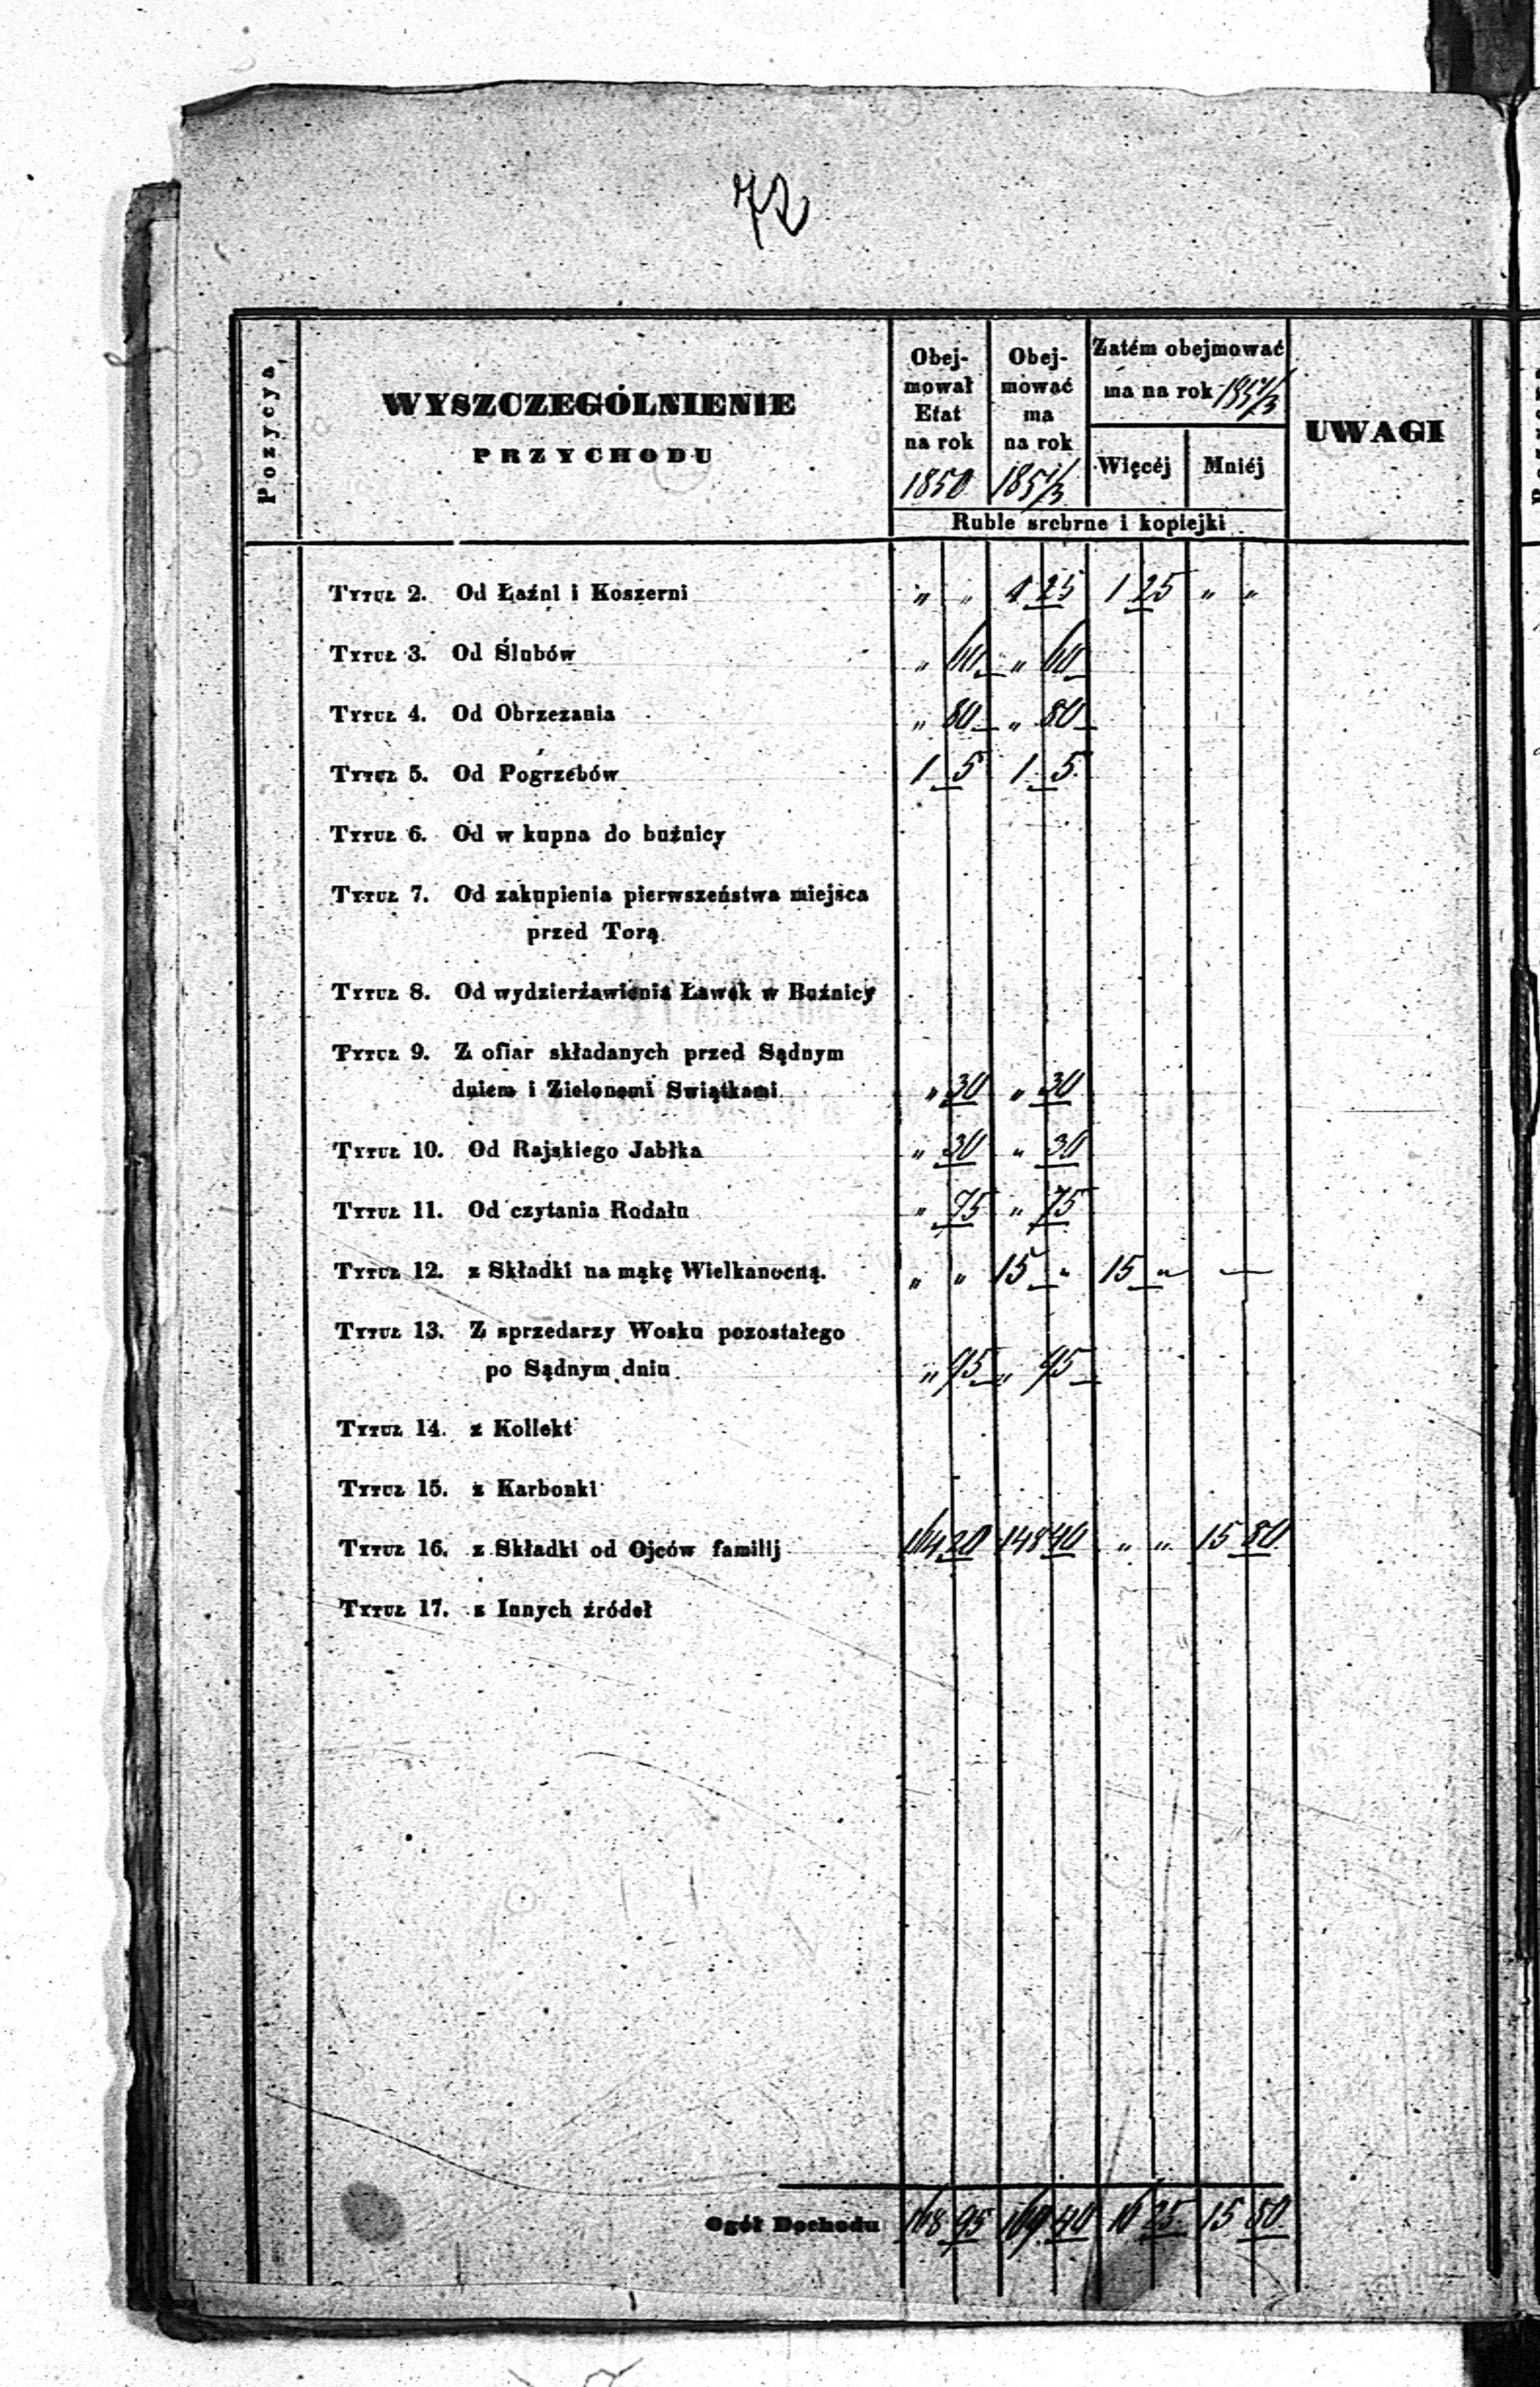 72
Pozycya
WYSZCZEGÓLNIENIE
PRZYCHODU
Obej-
mował
Etat
na rok
1850
Obej-
mować
ma
na rok
1851/3
Zatém obejmować
ma na rok 1851/3
Więcéj
Mniéj
Ruble srebrne i kopiejki
UWAGI
Tytuł 2. Od Łaźni i Koszerni „ „ 1 25 1 25 „ „
Tytuł 3. Od Ślubów „ 60 „ 60
Tytuł 4. Od Obrzezania „ 80 „ 80
Tytuł 5. Od Pogrzebów 1 5 1 5
Tytuł 6. Od w kupna do buźnicy
Tytuł 7. Od zakupienia pierwszeństwa miejsca
przed Torą
Tytuł 8. Od wydzierżawienia Ławek w Buźnicy
Tytuł 9. Z ofiar składanych przed Sądnym
dniem i Zielonemi Swiątkami „ 30 „ 30
Tytuł 10. Od Rajskiego Jabłka „ 30 „ 30
Tytuł 11. Od czytania Rodału „ 75 „ 75
Tytuł 12. z Składki na mąkę Wielkanocną. „ „ 15 „ 15 „ —
Tytuł 13. Z sprzedarzy Wosku pozostałego
po Sądnym dniu „ 95 „ 95
Tytuł 14. z Kollekt
Tytuł 15. z Karbonki
Tytuł 16. z Składki od Ojców familij 164 20 148 40 „ „ 15 80
Tytuł 17. z Innych źródeł
Ogół Dochodu 168 95 169 40 16 25 15 80